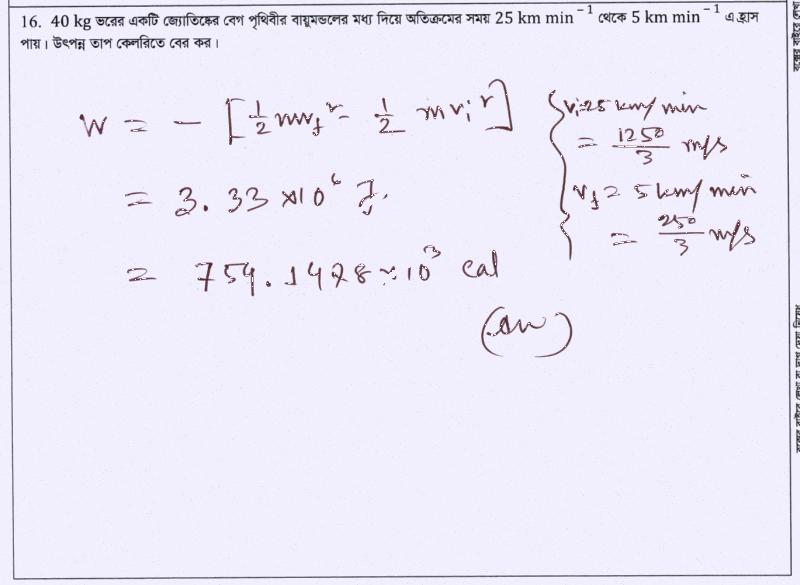 16. 40 kg ভরের একটি জ্যোতিষ্কের বেগ পৃথিবীর বায়ুমন্ডলের মধ্য দিয়ে অতিক্রমের সময় 25 km min⁻¹ থেকে 5 km min⁻¹ এ হ্রাস
পায়। উৎপন্ন তাপ কেলরিতে বের কর।
W = - [½ mv_f² - ½ m v_i²]
= 3.33 × 10⁶ J.
= 754.1478 × 10³ cal
(Ans)
v_i = 25 km/min
= 1250/3 m/s
v_f = 5 km/min
= 250/3 m/s